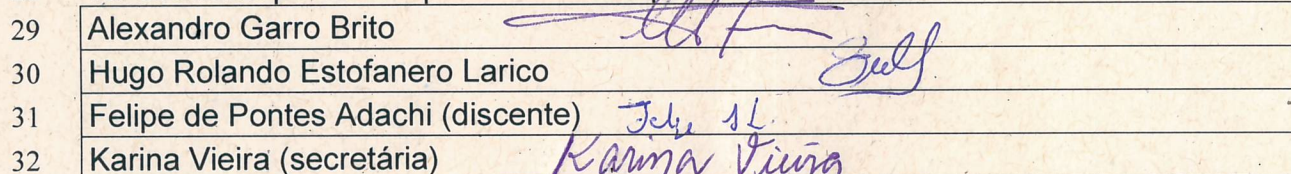 29 Alexandro Garro Brito
30 Hugo Rolando Estofanero Larico
31 Felipe de Pontes Adachi (discente) Felipe
32 Karina Vieira (secretária) Karina Vieira